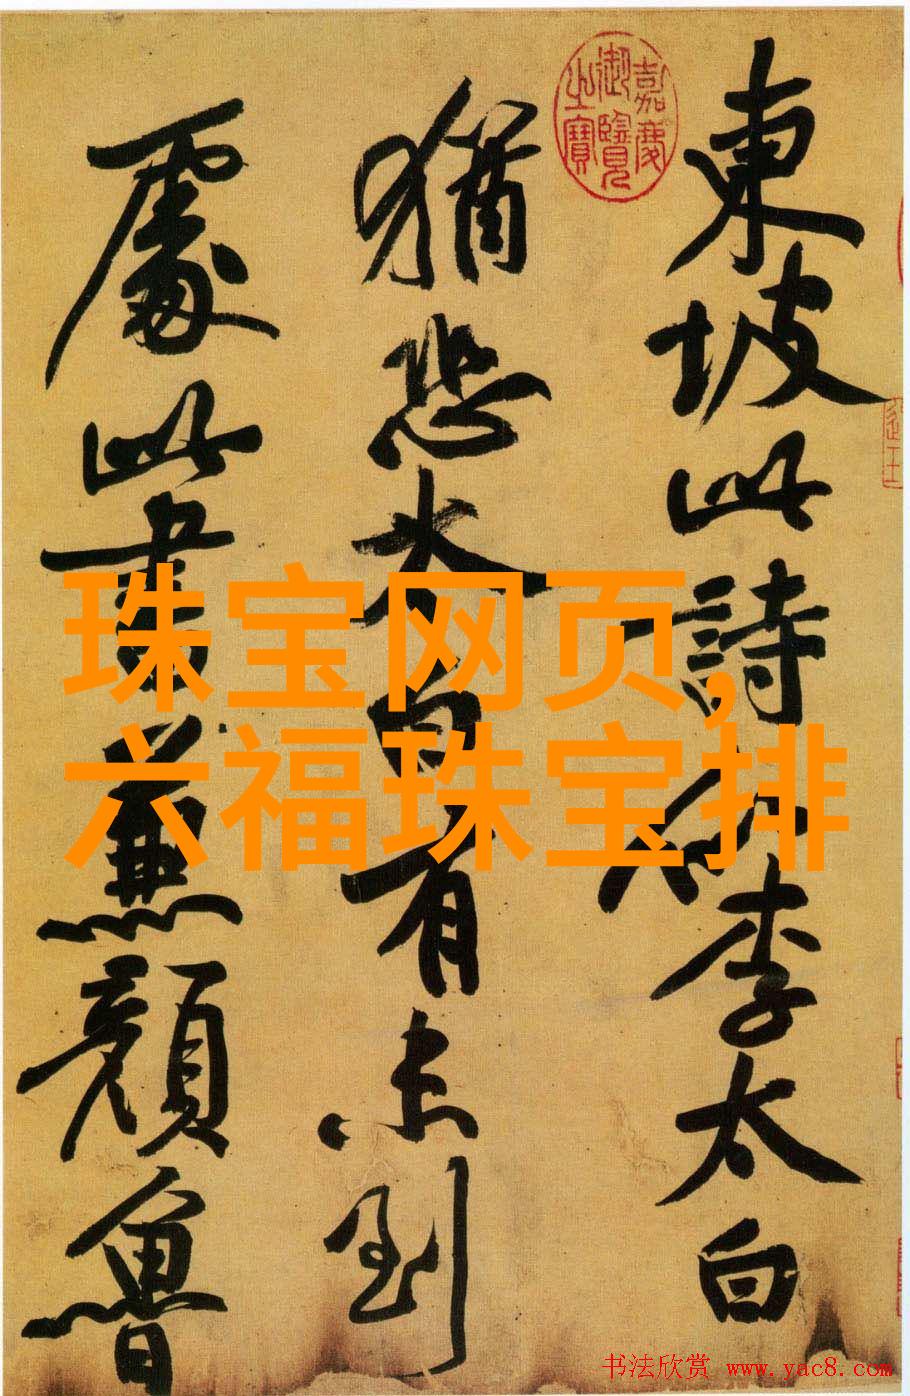 東坡此詩似李太白
猶恐太白有未到
處此書兼顏魯
嘉慶
御覽
之寶
珠宝网页,
六福珠宝排
书法欣赏 www.yac8.com